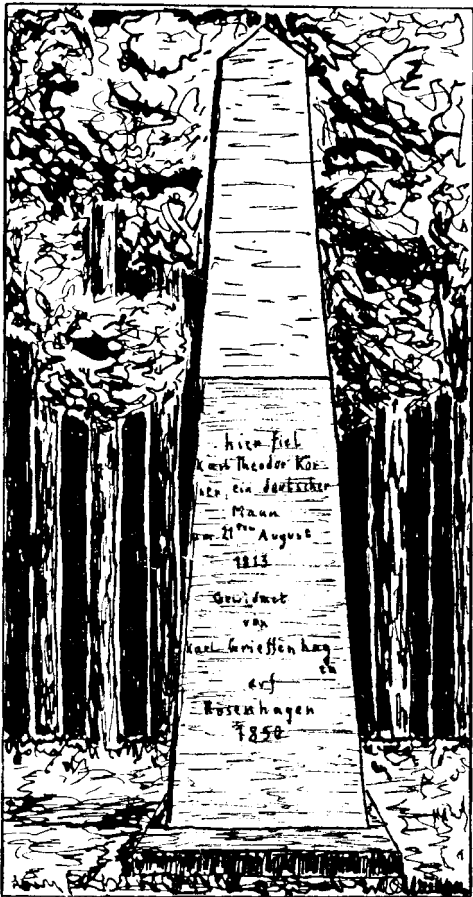 hier fiel
Karl Theodor Kör
ner ein deutscher
Mann
am 21ten August
1813
Gewidmet
von
Karl Grieffenhag
en
arf
Rosenhagen
1850